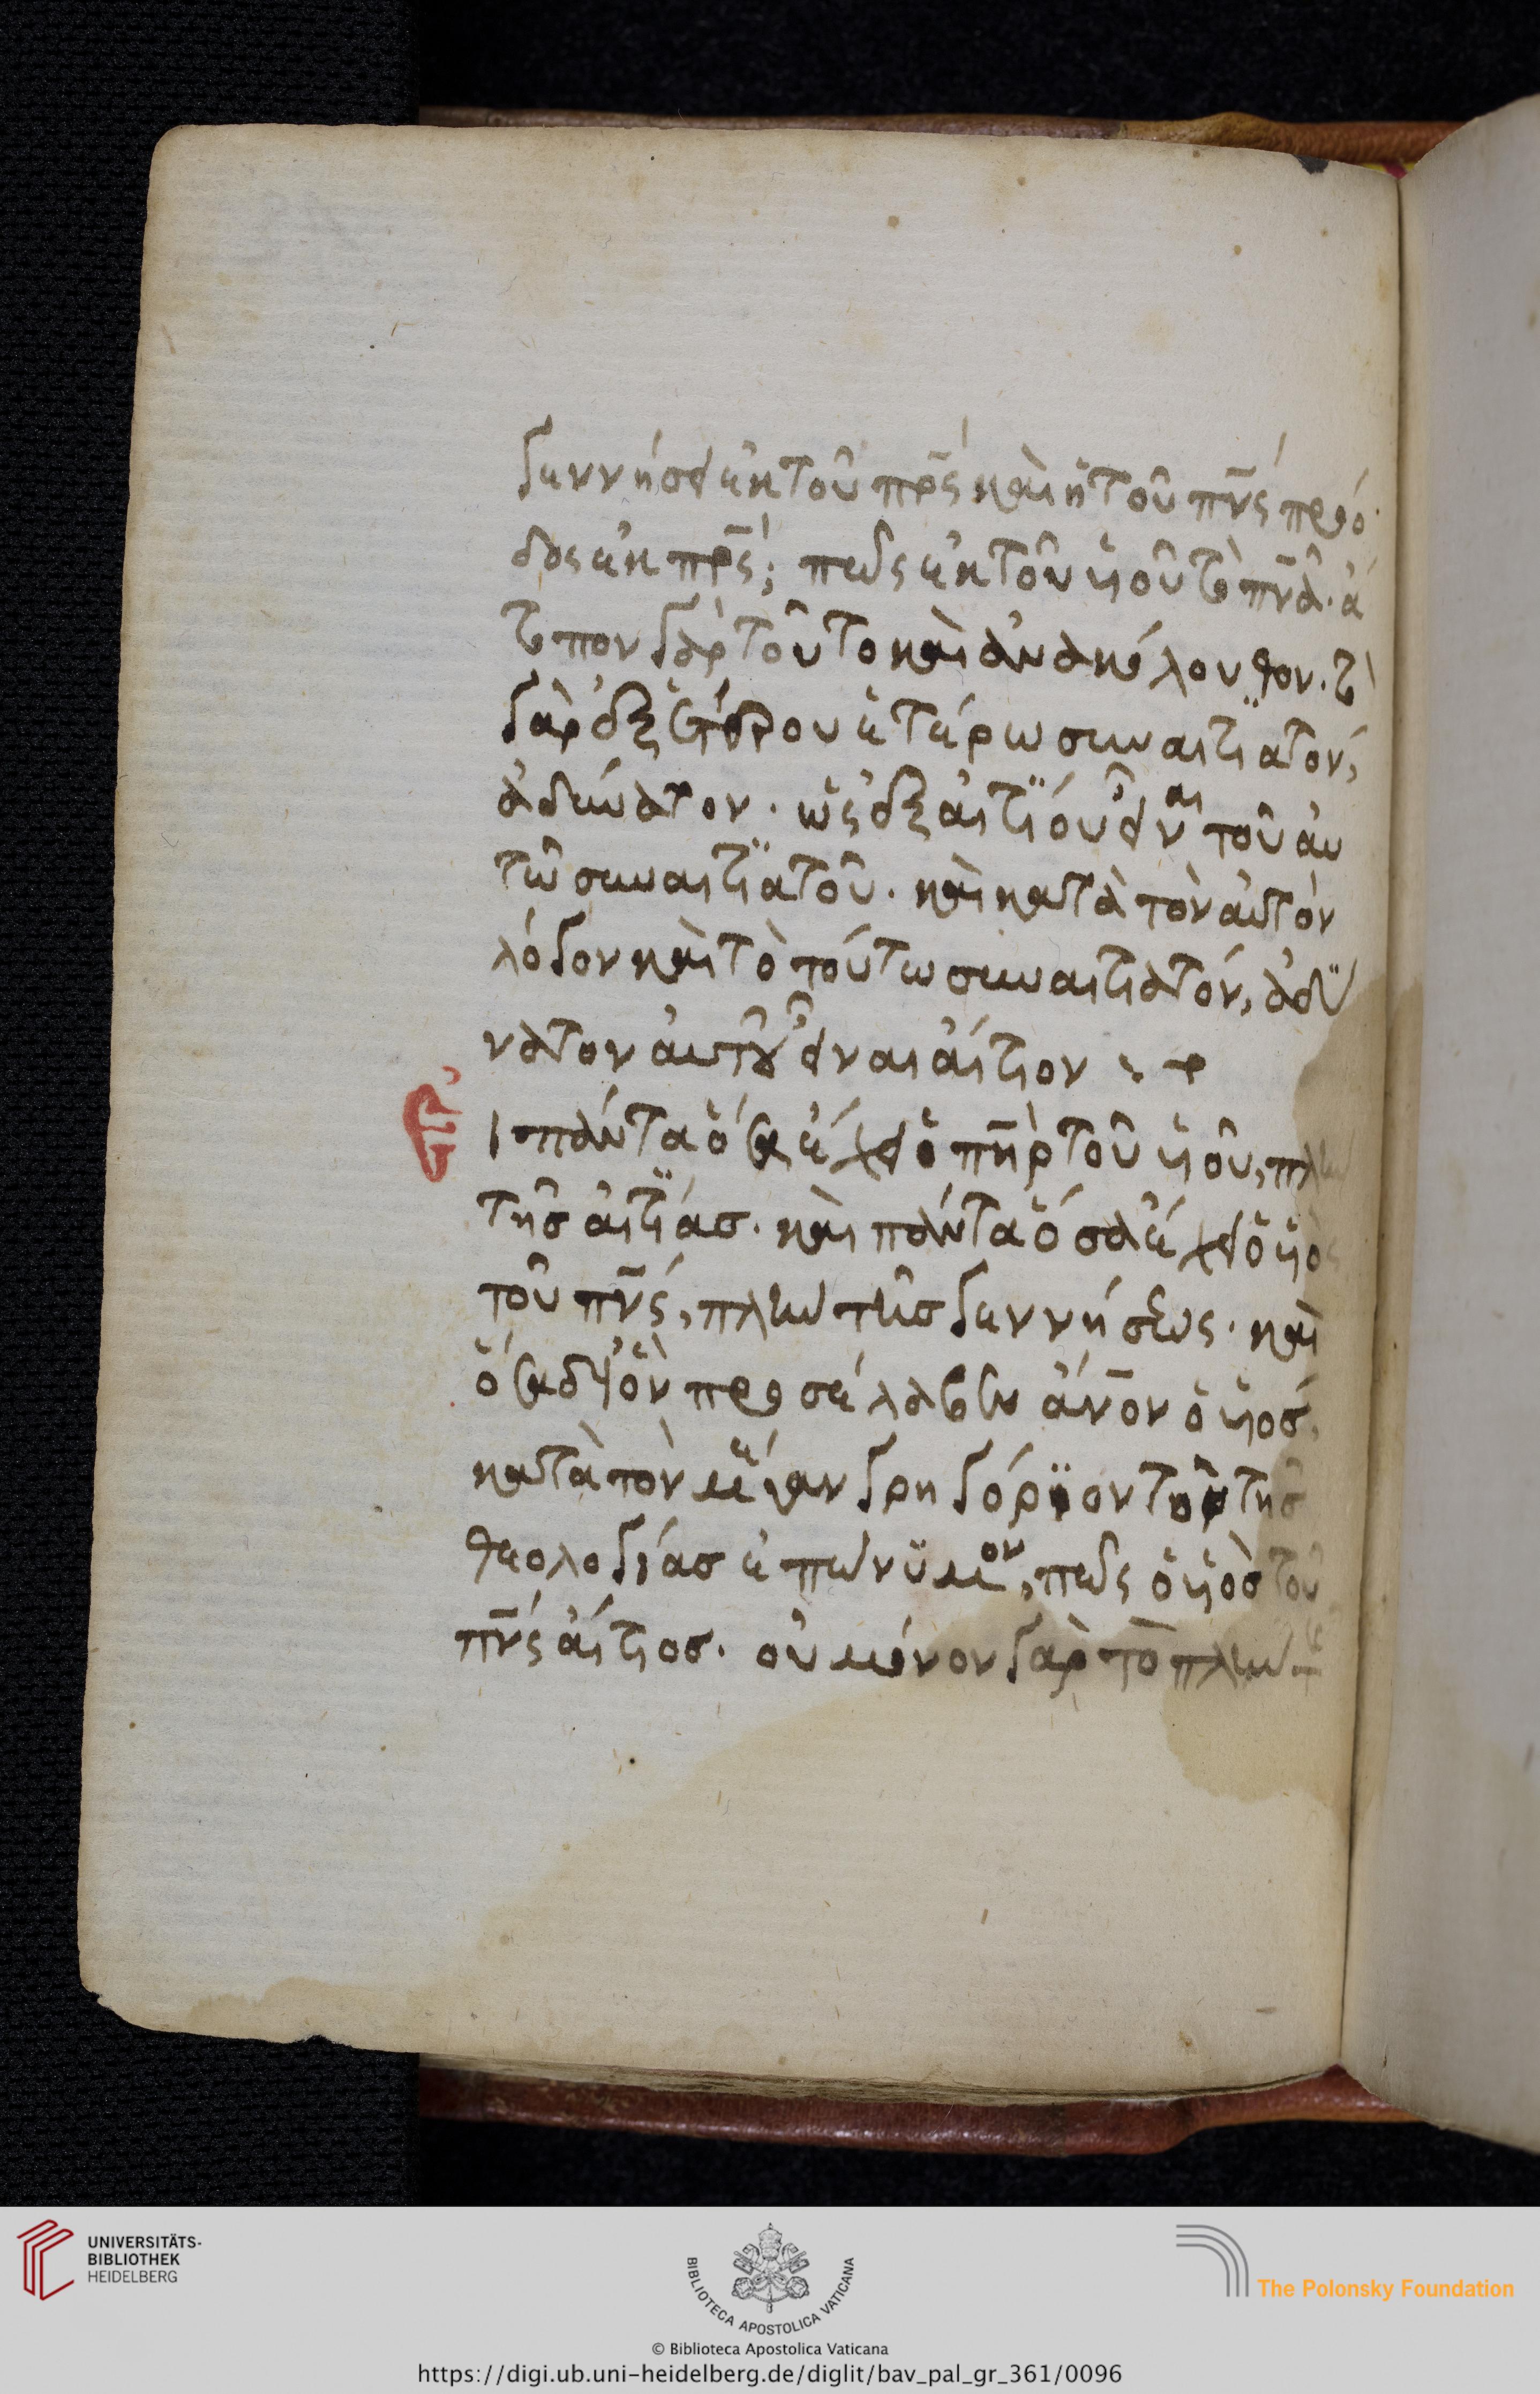 γεννήσει ἐκ τοῦ πρ̅ς καὶ ἡ τοῦ πν̅ς πρόο
δος ἐκ πρ̅ς; πῶς ἐκ τοῦ ὑιοῦ τὸ πν̅α. ἄ
τοπον γὰρ τοῦτο καὶ ἀνακόλουθον. τὸ
γὰρ ἐξ
ἀδύνατον. ὡς ἐξ αἰτίου εἶναι τοῦ αυ
τῶ συναιτιατοῦ. καὶ κατὰ τὸν αὐτὸν
λόγον καὶ τὸ τούτω συναιτιατόν, ἀδύ
νατον αὐτοῦ εἶναι αἴτιον :
Εἰ πάντα ὅσα ἔχει ὁ πη̅ρ τοῦ ὑιοῦ, πλὴν
τῆσ αἰτίασ. καὶ πάντα ὅσα ἔχει ὁ ὑιὸς
τοῦ πν̅ς, πλὴν τῆσ γεννήσεως. καὶ
ὅσα δι' ὃν προσέλαβεν ἄνον ὁ ὑιόσ,
κατὰ τὸν μέγαν γρηγόριον τὸν τῆσ
θεολογίασ ἐπώνυμον, πῶς ὁ ὑιὸσ τοῦ
πν̅ς αἴτιοσ. οὐ μόνον γὰρ τὸ πλὴν τ
UNIVERSITÄTS-
BIBLIOTHEK
HEIDELBERG
BIBLIOTECA APOSTOLICA VATICANA
The Polonsky Foundation
© Biblioteca Apostolica Vaticana
https://digi.ub.uni-heidelberg.de/diglit/bav_pal_gr_361/0096